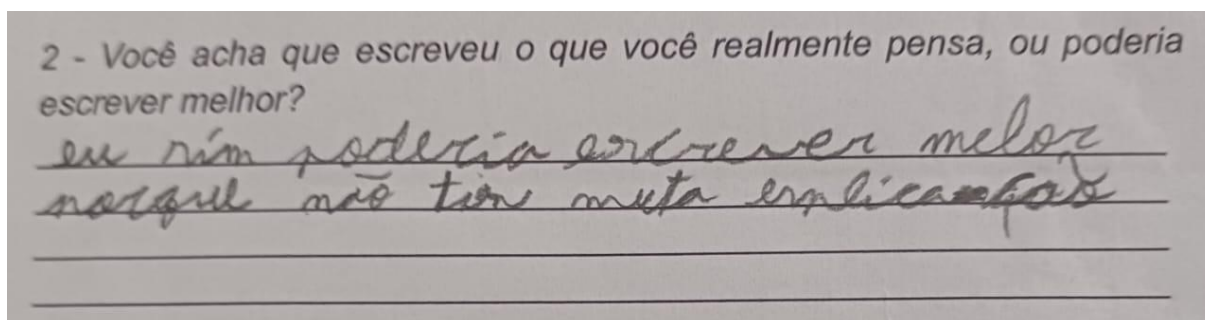 2 - Você acha que escreveu o que você realmente pensa, ou poderia
escrever melhor?
eu sim poderia escrever melor
porque não tive muta emplicação